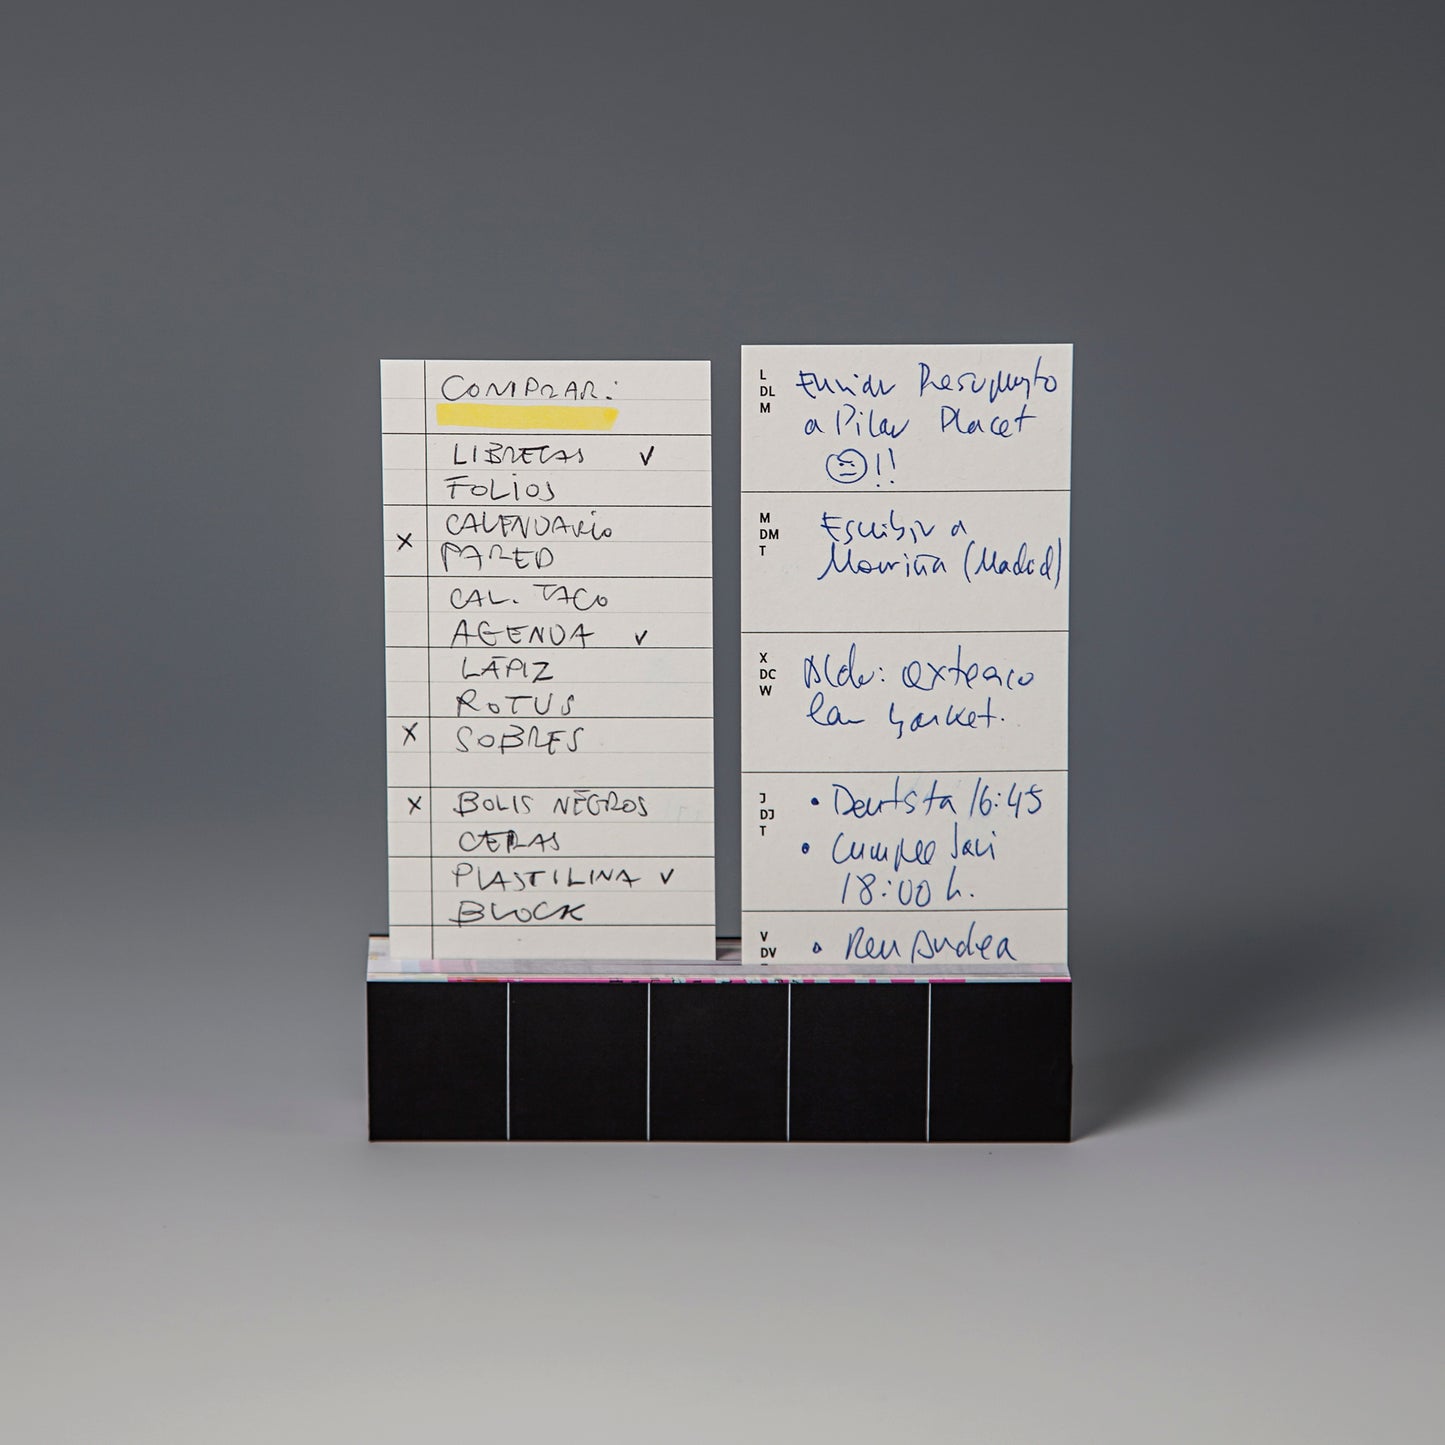 COMPRAR:
LIBRETAS ✓
FOLIOS
CALENDARIO
X
PARED
CAL. TACO
AGENDA ✓
LÁPIZ
ROTUS
X SOBRES
X BOLIS NEGROS
CERAS
PLASTILINA ✓
BLOCK
L
DL
M
Enviar Presupuesto
a Pilar Placet
!!
M
DM
T
Escribir a
Mouriña (Madrid)
X
DC
W
Aldo: extraesco
basket.
J
DJ
T
• Dentista 16:45
• Cumple Javi
18:00 h.
V
DV
• Reu Andrea